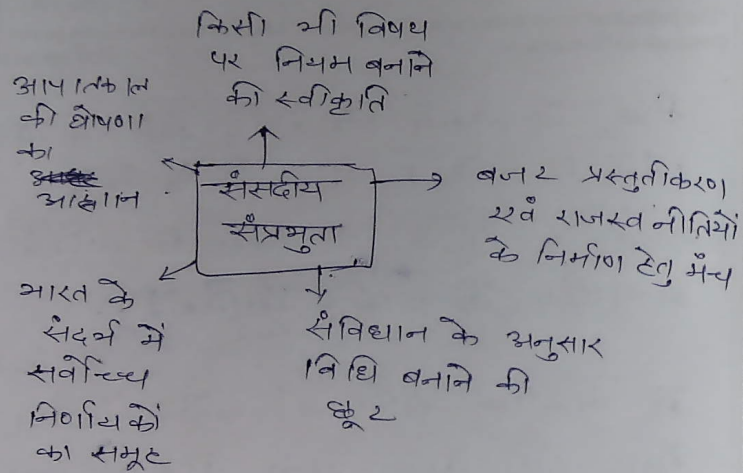 किसी भी विषय
पर नियम बनाने
की स्वीकृति
आपातकाल
की घोषणा
का
आह्वान
संसदीय
संप्रभुता
बजट प्रस्तुतीकरण
एवं राजस्व नीतियों
के निर्माण हेतु मंच
भारत के
संदर्भ में
सर्वोच्च
निर्णायकों
का समूह
संविधान के अनुसार
विधि बनाने की
छूट